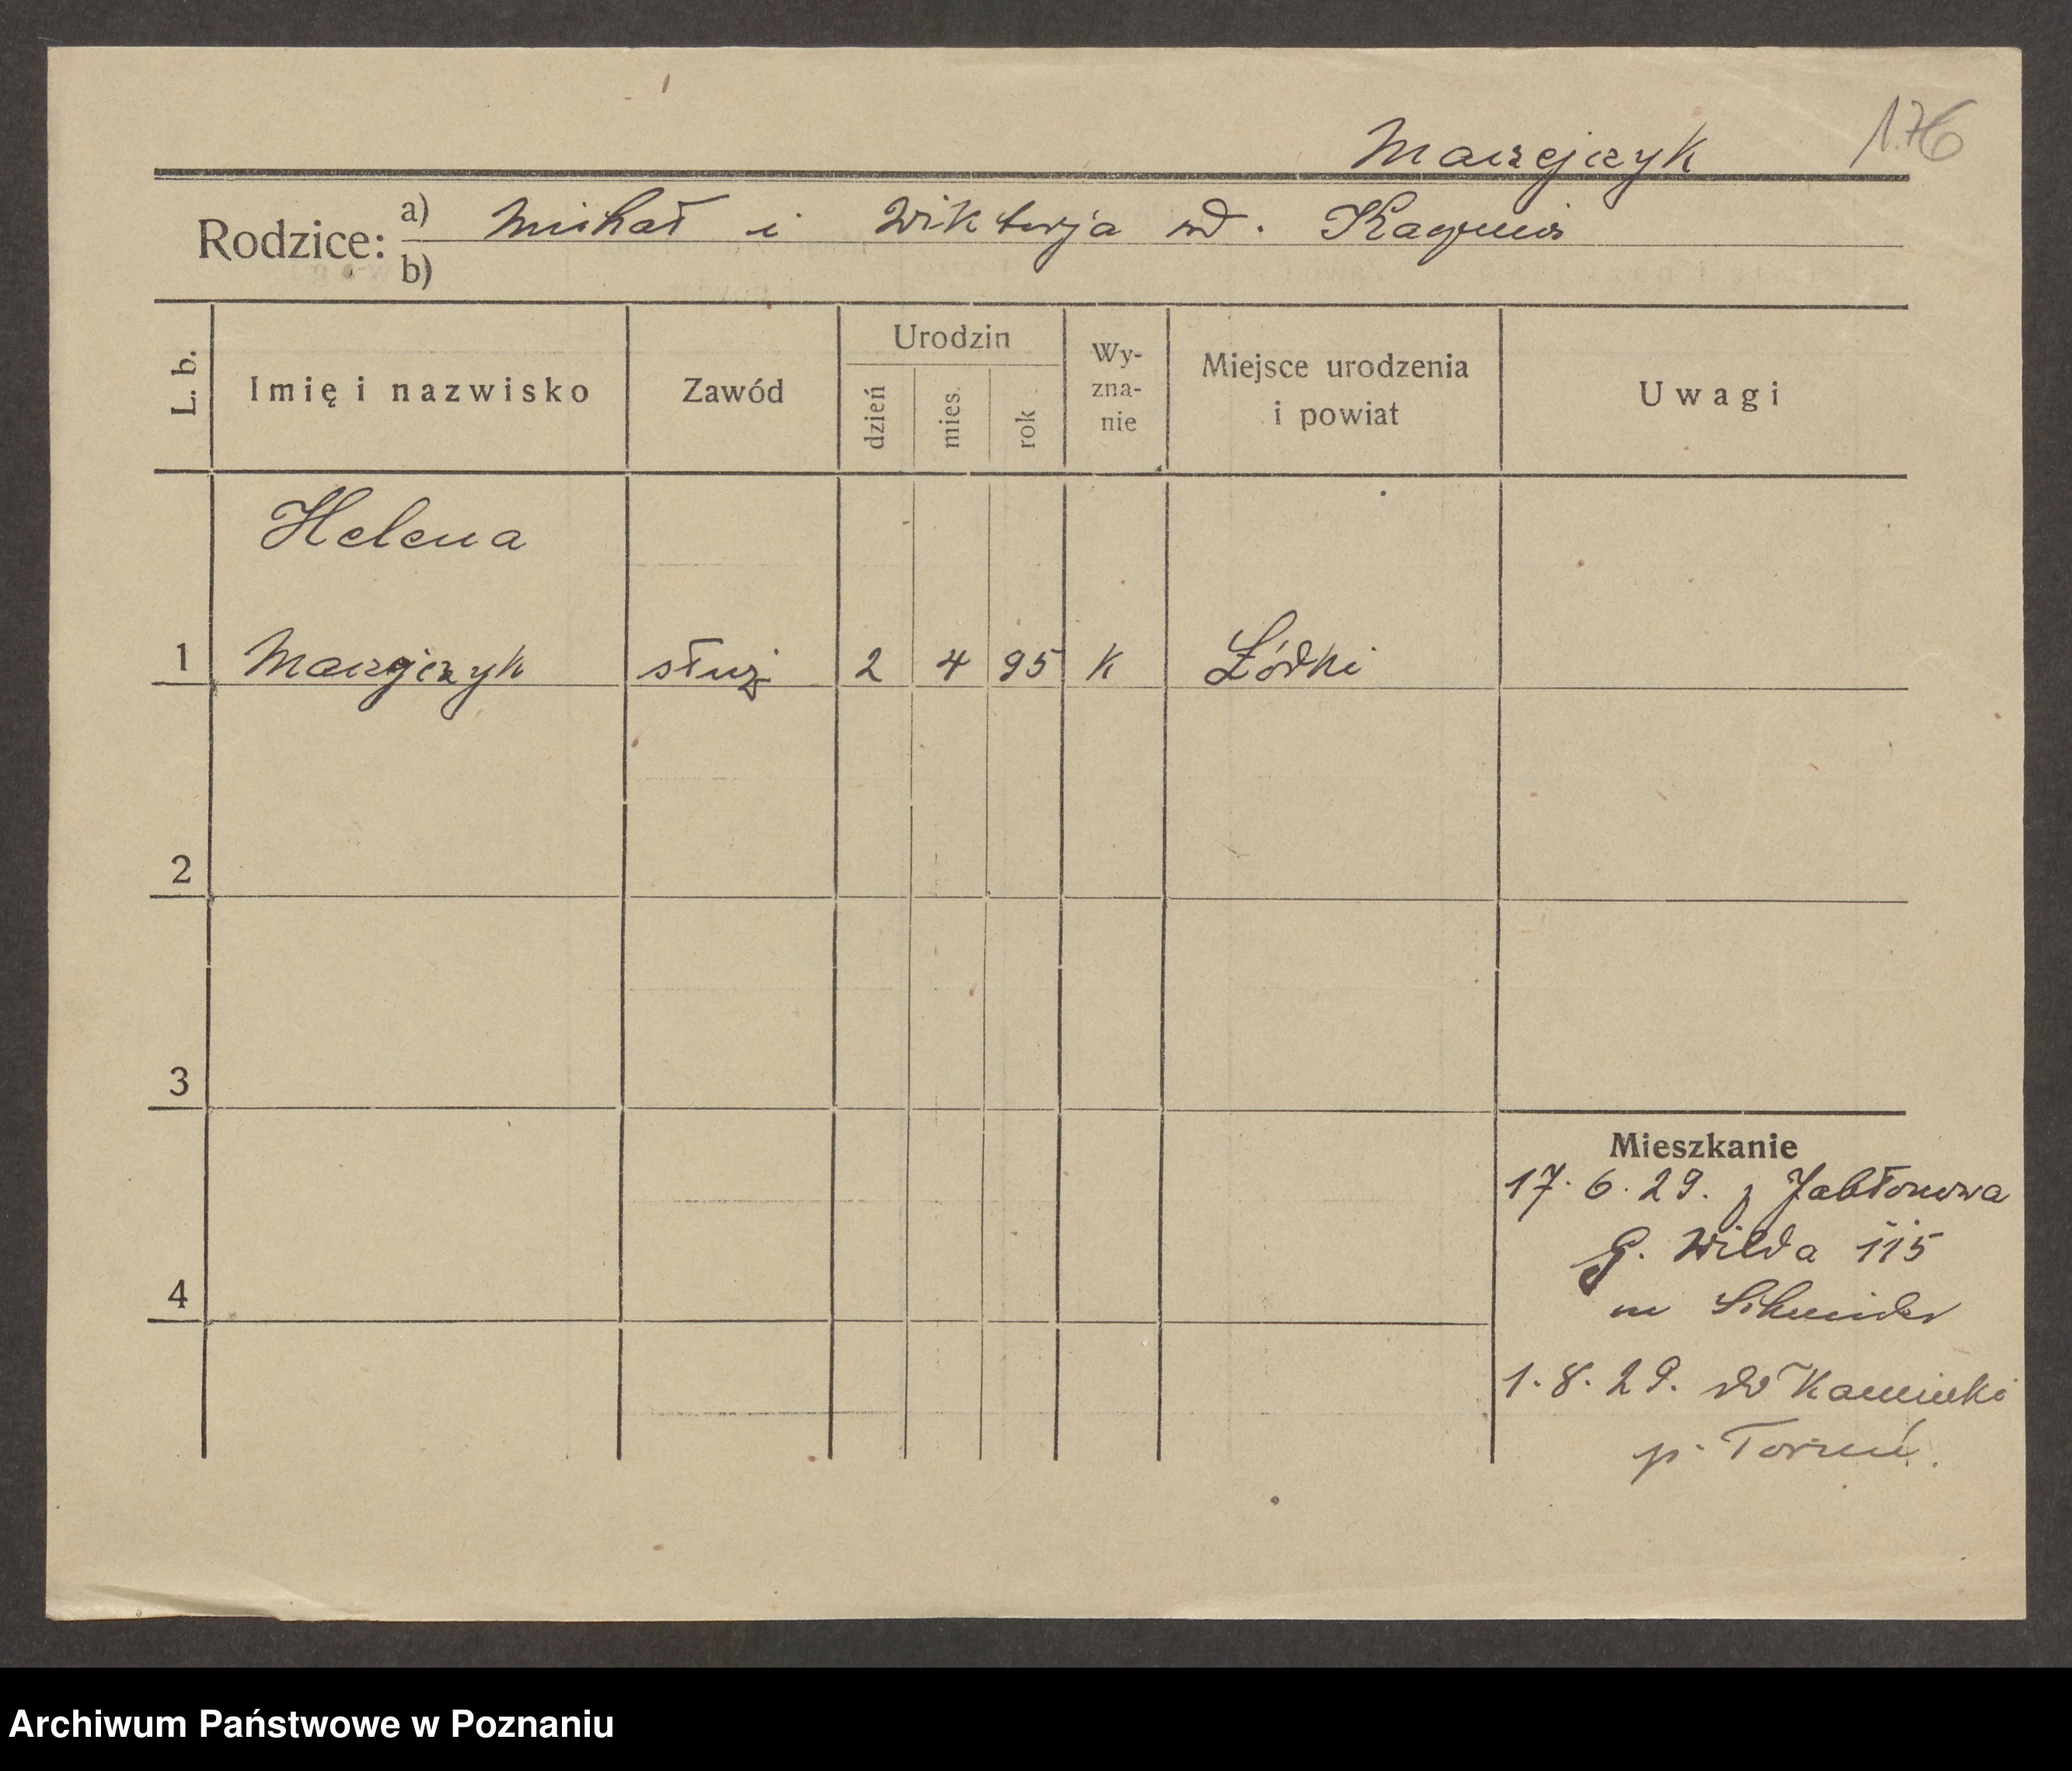 176
Maciejczyk
Rodzice: a) Michał i Wiktorja
b)
L. b.
Imię i nazwisko
Zawód
Urodzin
dzień
mies.
rok
Wy-
zna-
nie
Miejsce urodzenia
i powiat
Uwagi
Helena
1 Maciejczyk służ 2 4 95 K Łódki
2
3
4
Mieszkanie
17. 6. 29. z Jabłonowa
G. Wilda 115
Schneider
1. 8. 29. do Kamionki
p. Toruń.
Archiwum Państwowe w Poznaniu